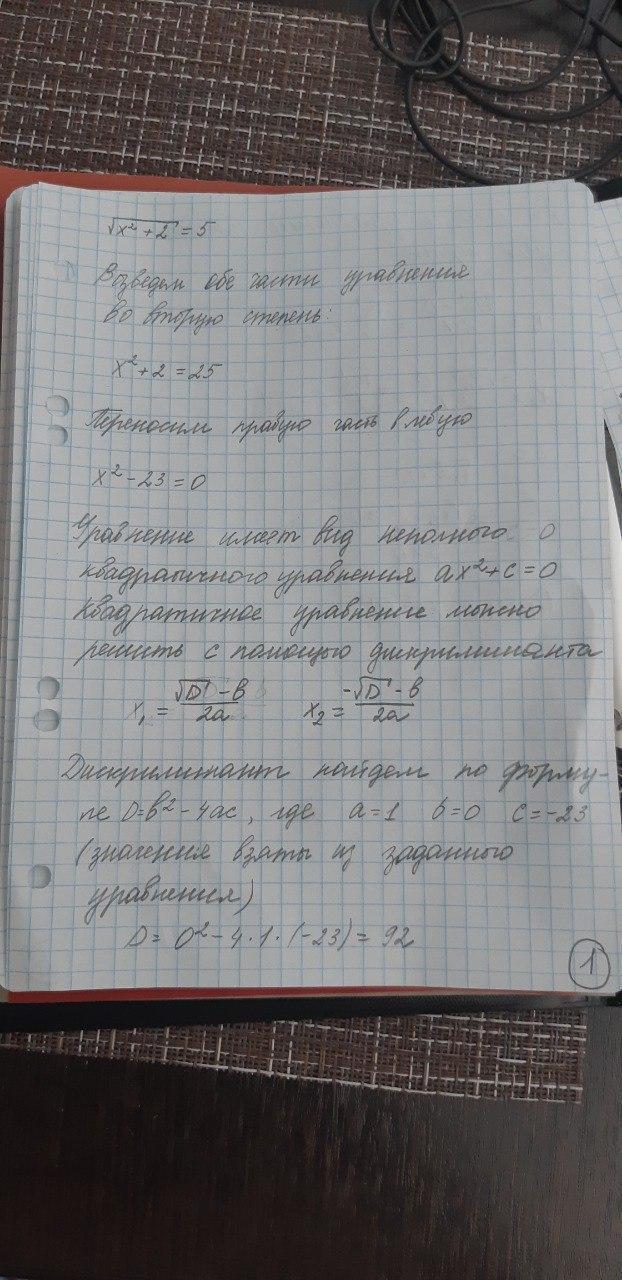 √x²+2 = 5
Возведем обе части уравнения
во вторую степень:
x²+2=25
Переносим правую часть в левую
x²-23=0
Уравнение имеет вид неполного
квадратичного уравнения ax²+c=0
Квадратичное уравнение можно
решить с помощью дискриминанта
x₁ = (√D - b)/2a x₂ = (-√D - b)/2a
Дискриминант найдем по форму-
ле D=b²-4ac, где a=1 b=0 c=-23
(значения взяты из заданного
уравнения)
D= 0²-4·1·(-23)=92
1